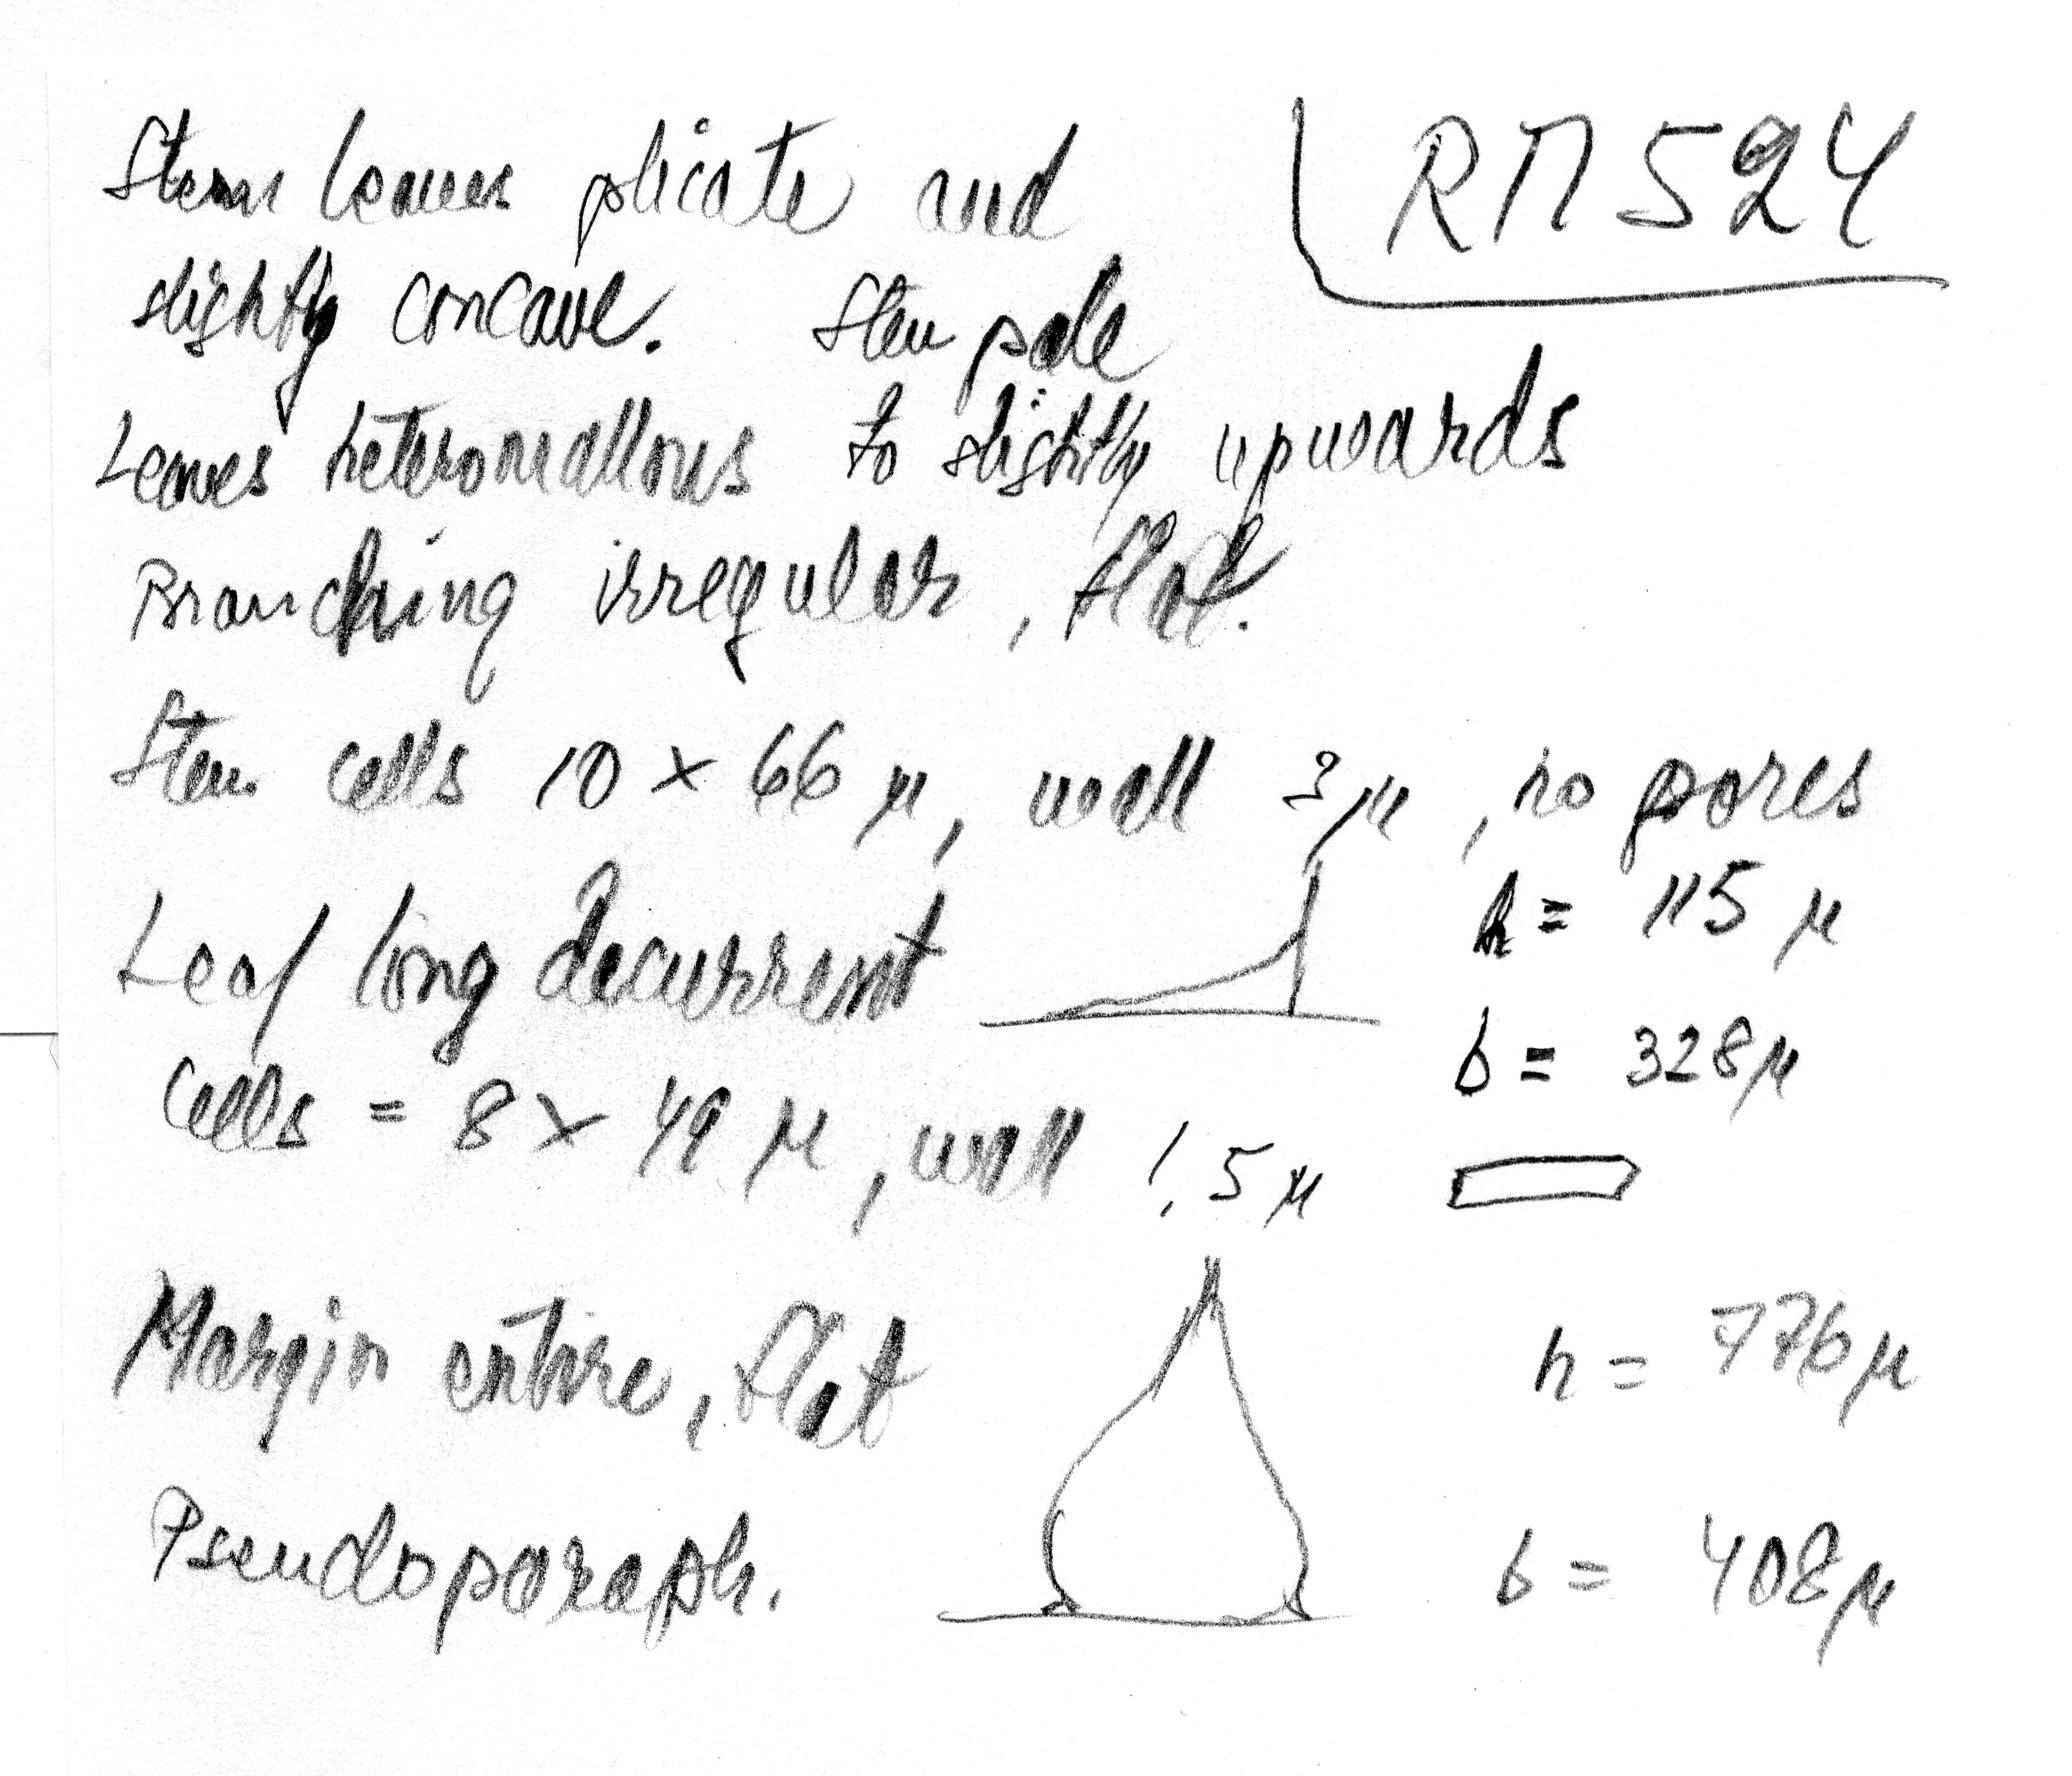 RM 524
Stem leaves plicate and
slightly concave. Stem pale
Leaves heteromallous to slightly upwards
Branching irregular, flat.
Stem cells 10 × 66 μ, wall 3 μ, no pores
Leaf long decurrent
h = 115 μ
b = 328 μ
Cells = 8 × 49 μ, wall 1,5 μ
Margin entire, flat
h = 776 μ
Pseudoparaph.
b = 408 μ